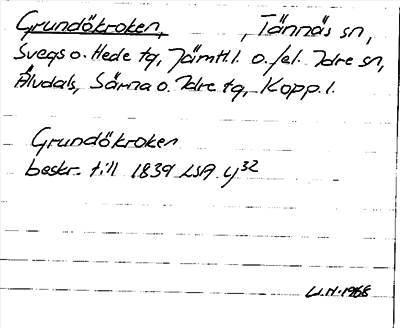 Grundökroken, , Tännäs sn,
Svegs o. Hede tg, Jämtl. l. o./el. Idre sn,
Älvdals, Särna o. Idre tg, Kopp. l.
Grundökroken
beskr. till 1839 LSA y32
1968